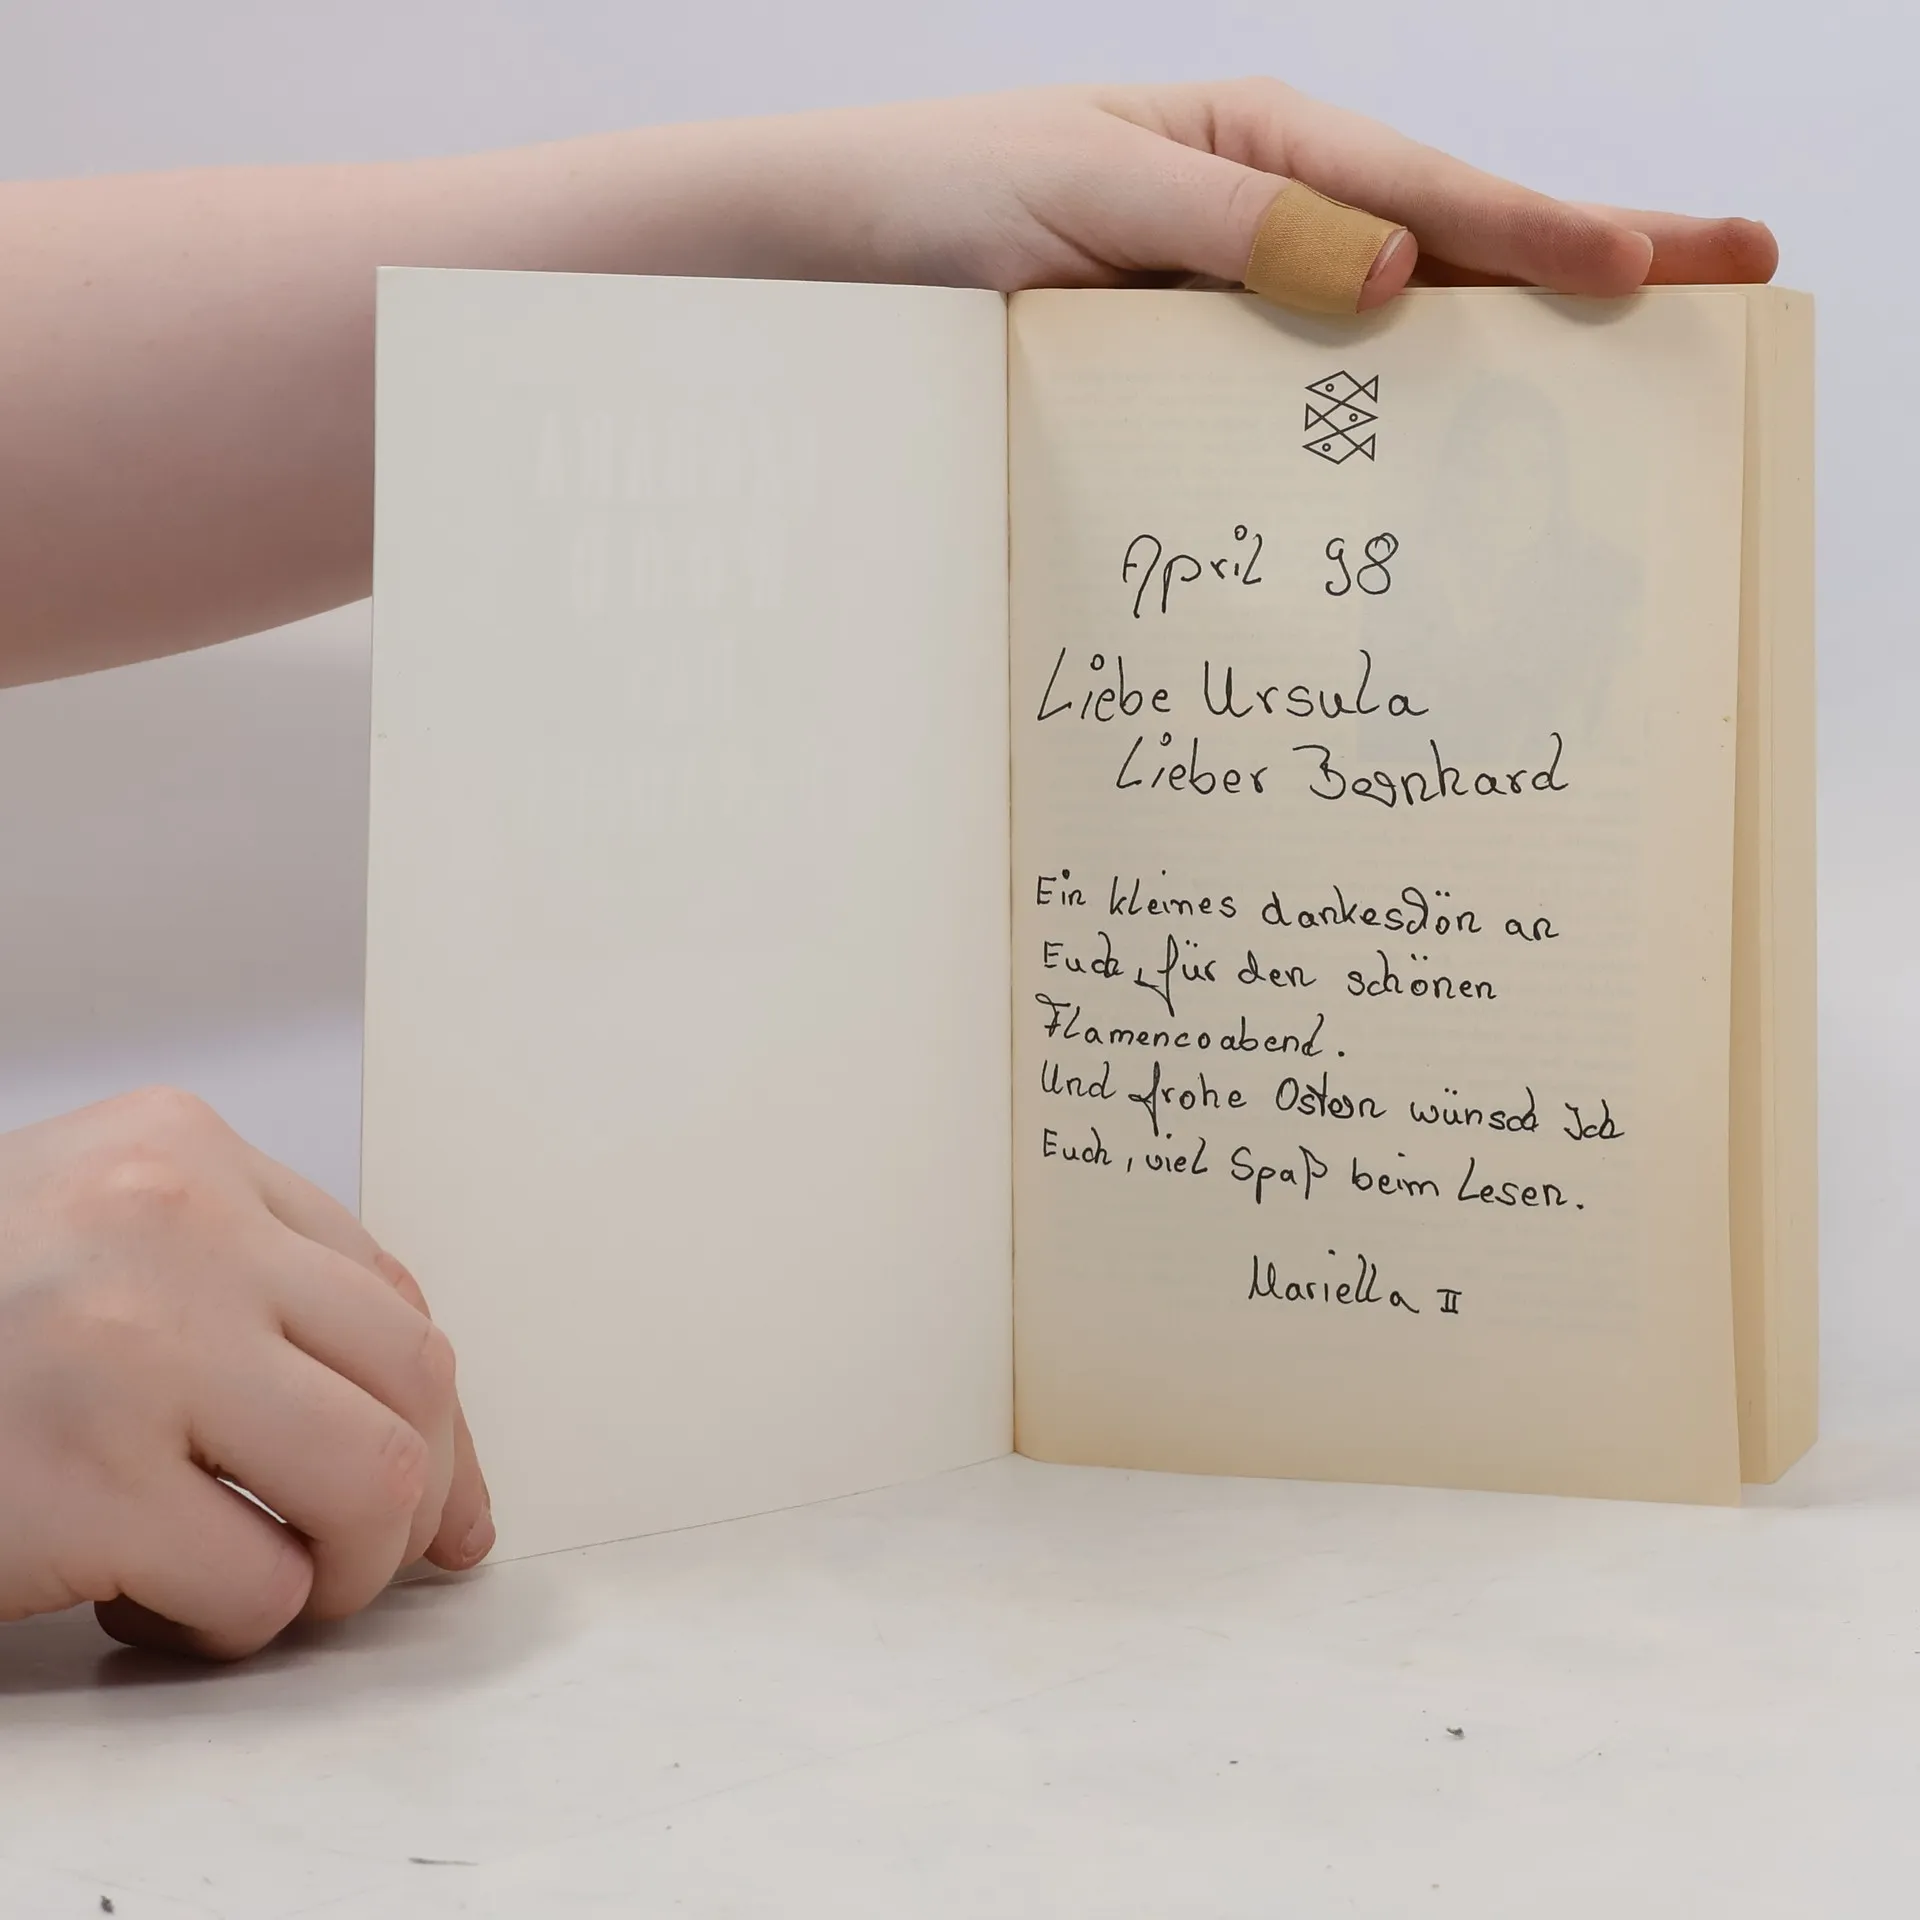 April 98
Liebe Ursula
Lieber Bernhard
Ein kleines dankeschön an
Euch, für den schönen
Flamencoabend.
Und frohe Ostern wünsch Ich
Euch, viel Spaß beim Lesen.
Mariella II